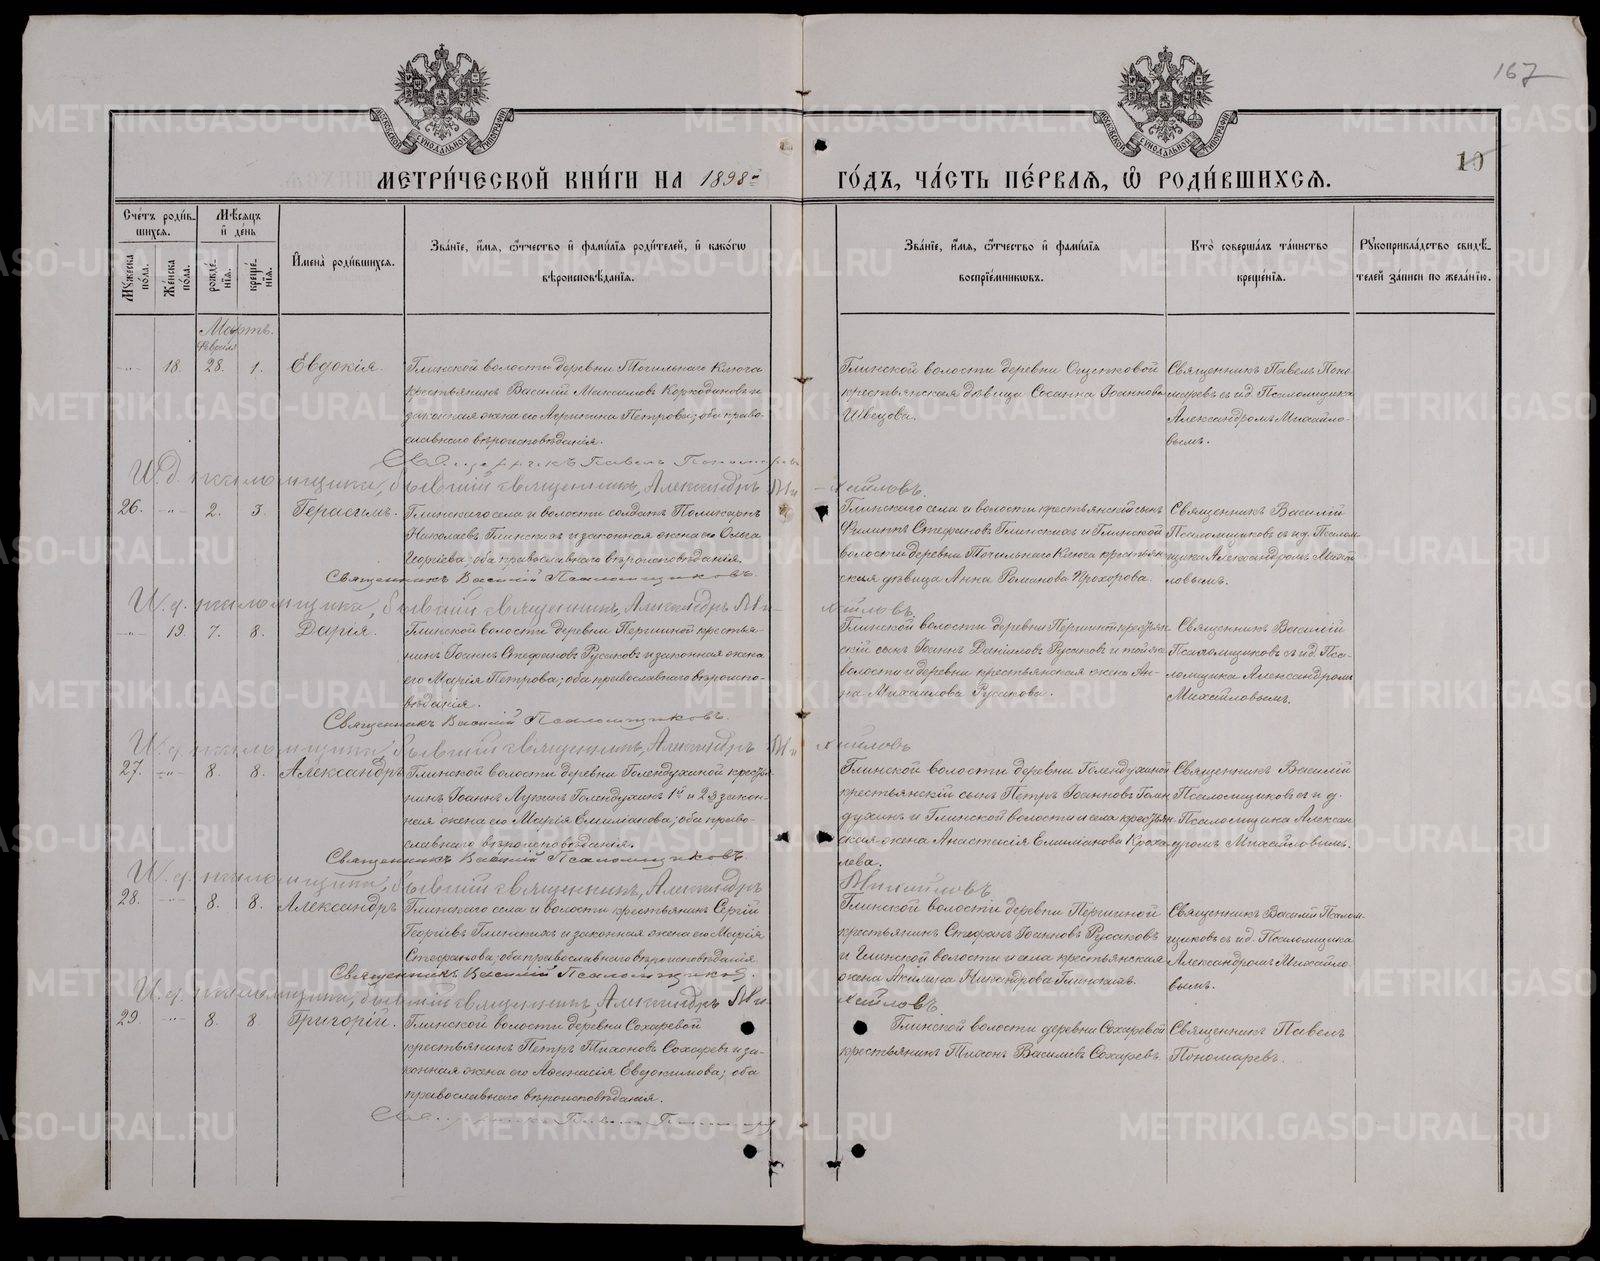 167
10
МЕТРИ́ЧЕСКОЙ КНИ́ГИ НА 1898й ГО́ДЪ, ЧА́СТЬ ПЕ́РВАѦ, Ѡ҆ РОДИ́ВШИХСѦ.
Сче́тъ роди́в-
шихсѧ.
Мѣ́сѧцъ
и҆ де́нь
Мꙋ́жеска по́ла.
Же́нска по́ла.
рожде́-нїѧ.
креще́-нїѧ.
И҆мена̀ роди́вшихсѧ.
Зва́нїе, и҆́мѧ, ѻ҆́тчество и҆ фами́лїѧ роди́телей, и҆ како́гѡ
вѣроисповѣ́данїѧ.
Зва́нїе, и҆́мѧ, ѻ҆́тчество и҆ фами́лїѧ
воспрїе́мникѡвъ.
Кто̀ соверша́лъ та́инство
креще́нїѧ.
Рꙋкоприкла́дство свидѣ́-
телей за́писи по жела́нїю.
Мартъ.
Февраля
18. 28. 1. Евдокія.
Глинской волости деревни Точильнаго Ключа
крестьянинъ Василій Максимовъ Коркодиновъ и
законная жена его Агрипина Петрова; оба право-
славнаго вѣроисповѣданія.
Глинской волости деревни Ощепковой
крестьянская дѣвица Сосанна Іоаннова
Швецова.
Священникъ Павелъ Поно-
маревъ съ и.д. Псаломщика
Александромъ Михайло-
вымъ.
Священникъ Павелъ Пономаревъ
И. д. псаломщика, бывшій священникъ, Александръ Ми-хайловъ.
26. 2. 3. Герасимъ.
Глинскаго села и волости солдатъ Поликарпъ
Николаевъ Глинскихъ и законная жена его Ольга
Георгіева; оба православнаго вѣроисповѣданія.
Глинскаго села и волости крестьянскій сынъ
Филиппъ Стефановъ Глинскихъ и Глинской
волости деревни Точильнаго Ключа крестьян-
ская дѣвица Анна Романова Прохорова.
Священникъ Василій
Псаломщиковъ съ и.д. Псалом-
щика Александромъ Михай-
ловымъ.
Священникъ Василій Псаломщиковъ.
И. д. псаломщика, бывшій священникъ, Александръ Ми-хайловъ
19. 7. 8. Дарія.
Глинской волости деревни Першиной крестья-
нинъ Іоаннъ Стефановъ Русаковъ и законная жена
его Марія Петрова; оба православнаго вѣроиспо-
вѣданія.
Глинской волости деревни Першиной крестьян-
скій сынъ Іоаннъ Даніиловъ Русаковъ и той же
волости и деревни крестьянская жена Ан-
на Михаилова Русакова.
Священникъ Василій
Псаломщиковъ съ и.д. Пса-
ломщика Александромъ
Михайловымъ.
Священникъ Василій Псаломщиковъ.
И. д. псаломщика, бывшій священникъ, Александръ Ми-хайловъ
27. 8. 8. Александръ
Глинской волости деревни Голендухиной крестья-
нинъ Іоаннъ Лукинъ Голендухинъ 1й и 2я закон-
ная жена его Марія Емиліанова; оба право-
славнаго вѣроисповѣданія.
Глинской волости деревни Голендухиной
крестьянскій сынъ Петръ Іоанновъ Голен-
духинъ и Глинской волости и села крестьян-
ская жена Анастасія Емиліанова Кроха-
лева.
Священникъ Василій
Псаломщиковъ съ и. д.
Псаломщика Алексан-
дромъ Михайловымъ.
Священникъ Василій Псаломщиковъ.
И. д. псаломщика, бывшій священникъ, Александръ Михайловъ
28. 8. 8. Александръ
Глинскаго села и волости крестьянинъ Сергій
Георгіевъ Глинскихъ и законная жена его Марія
Стефанова; оба православнаго вѣроисповѣданія
Глинской волости деревни Першиной
крестьянинъ Стефанъ Іоанновъ Русаковъ
и Глинской волости и села крестьянская
жена Акилина Никандрова Глинскихъ.
Священникъ Василій Псалом-
щиковъ съ и.д. Псаломщика
Александромъ Михайло-
вымъ.
Священникъ Василій Псаломщиковъ.
И. д. псаломщика, бывшій священникъ, Александръ Ми-хайловъ.
29. 8. 8 Григорій.
Глинской волости деревни Сохаревой
крестьянинъ Петръ Тихоновъ Сохаревъ и за-
конная жена его Аѳанасія Евдокимова; оба
православнаго вѣроисповѣданія.
Глинской волости деревни Сохаревой
крестьянинъ Тихонъ Василіевъ Сохаревъ.
Священникъ Павелъ
Пономаревъ.
Священникъ Павелъ Пономаревъ